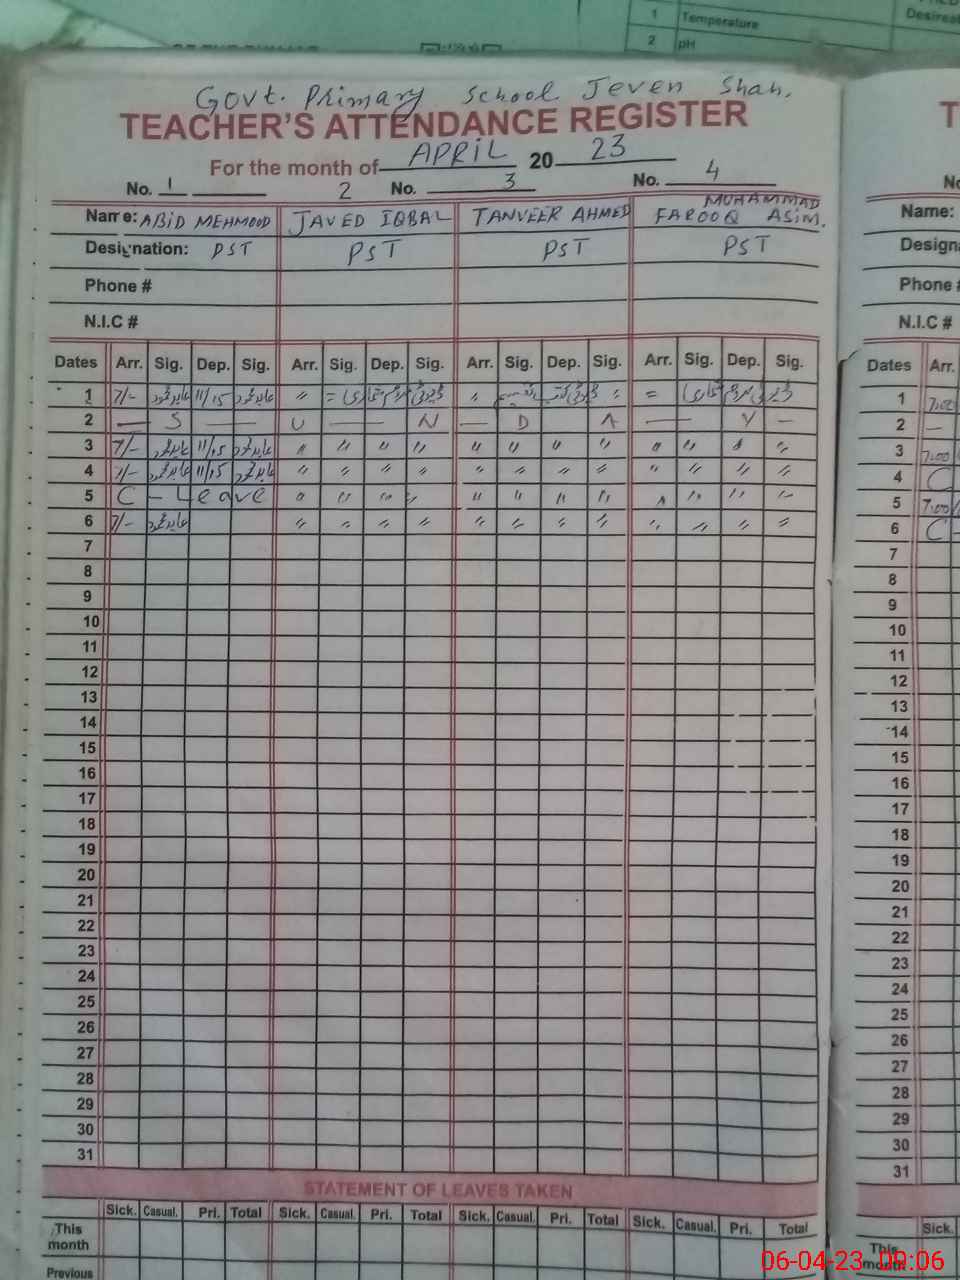 1 Temperature
Desireab
2 pH
Govt. Primary School Jeven Shah.
TEACHER'S ATTENDANCE REGISTER
For the month of APRIL 20 23
No. 1 2 No. 3 No. 4
Name: ABID MEHMOOD JAVED IQBAL TANVEER AHMED MUHAMMAD FAROOQ ASIM.
Designation: PST PST PST PST
Phone #
N.I.C #
Dates Arr. Sig. Dep. Sig. Arr. Sig. Dep. Sig. Arr. Sig. Dep. Sig. Arr. Sig. Dep. Sig.
1 7/- عابد محمود 11/15 عابد محمود
2 — S — U — N — D A — Y —
3 7/- عابد محمود 11/15 عابد محمود " " " " " " " " " " " "
4 7/- عابد محمود 11/15 عابد محمود " " " " " " " " " " " "
5 C - Leave " " " " " " " " " " " "
6 7/- عابد محمود " " " " " " " " " " " "
7
8
9
10
11
12
13
14
15
16
17
18
19
20
21
22
23
24
25
26
27
28
29
30
31
STATEMENT OF LEAVES TAKEN
Sick. Casual. Pri. Total Sick. Casual. Pri. Total Sick. Casual. Pri. Total Sick. Casual. Pri. Total
This month
Previous
T
No
Name:
Designa
Phone #
N.I.C #
Dates Arr.
1 7.00
2 —
3 7.00
4 C
5 7.00
6 C -
7
8
9
10
11
12
13
14
15
16
17
18
19
20
21
22
23
24
25
26
27
28
29
30
31
Sick.
This month
06-04-23 00:06